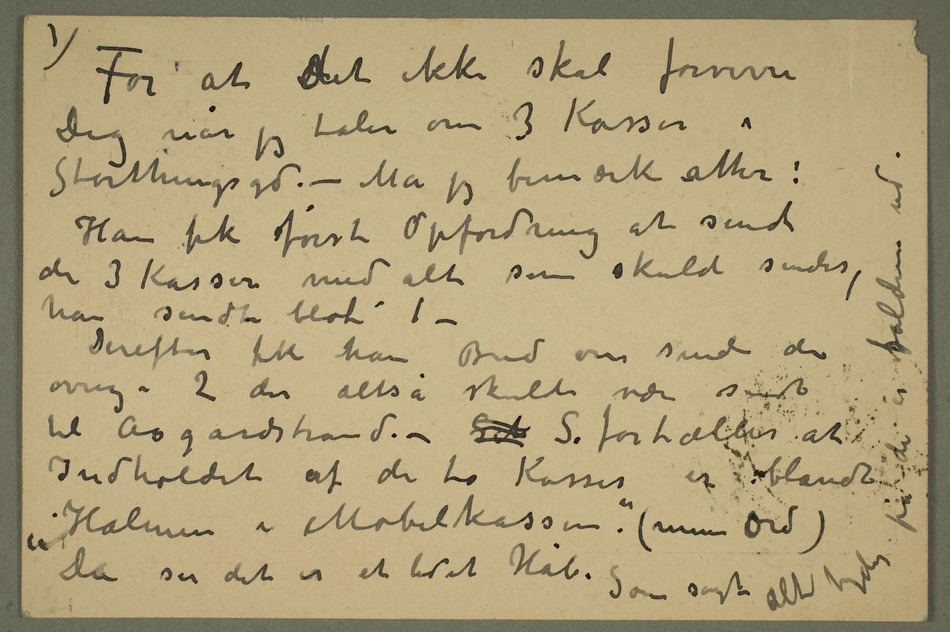 1)
For at det ikke skal forvirre
Dig når jeg taler om 3 Kasser i
Storthingsgd. — Må jeg bemærke atter:
Han fik først Opfordring at sende
de 3 Kasser med alt som skulde sendes,
han sendte blot 1 —
Derefter fik han Bud om sende de
øvrige 2 der altså skulde være sendt
til Aasgaardstrand. — S. fortæller at
Indholdet af de to Kasser er iblandt
"Halmen i Møbelkassen". (mine Ord)
Da ser det er et lidet Håb. Som sagt alt tyder
på de er faldne ud.